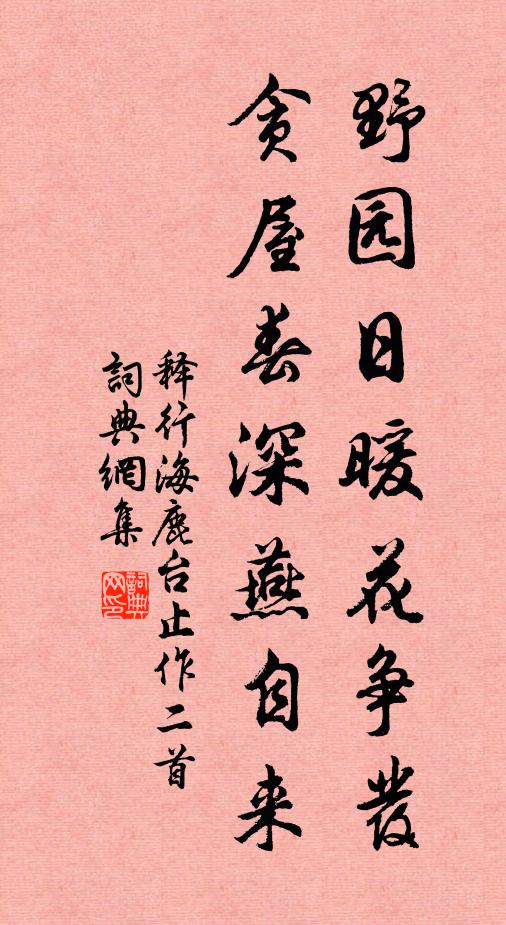 野园日暖花争發
贪屋春深燕自来
释行海鹿台止作二首
詞典網集
詞典网印